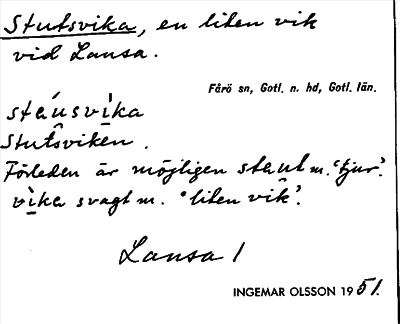 Stutsvika, en liten vik
vid Lansa.
Fårö sn, Gotl. n. hd, Gotl. län.
stáusvìka
Stutsviken.
Förleden är möjligen staut m. 'tjur'.
vìka svagt m. 'liten vik'.
Lansa 1
INGEMAR OLSSON 1951.